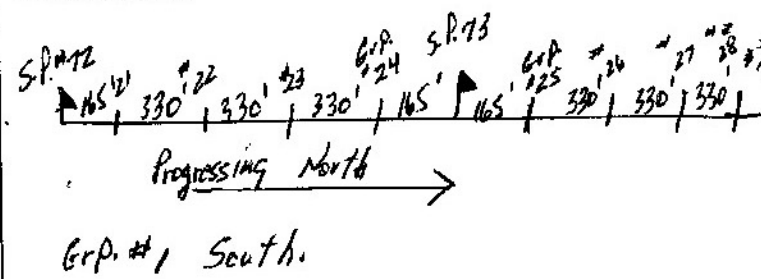 S.P.#72 165' 21 330' #22 330' #23 330' Grp. #24 165' S.P.73 165' Grp. #25 330' #26 330' #27 330' #28
Progressing North
Grp. #1 South.